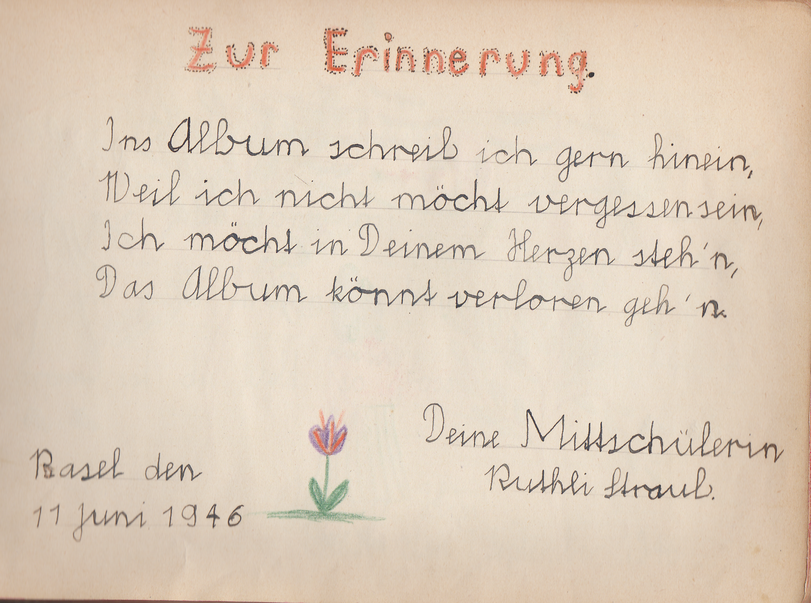 Zur Erinnerung.
Ins Album schreib ich gern hinein,
Weil ich nicht möcht vergessen sein,
Ich möcht in Deinem Herzen steh'n,
Das Album könnt verloren geh'n.
Deine Mittschülerin
Ruthli Straub.
Basel den
11 Juni 1946